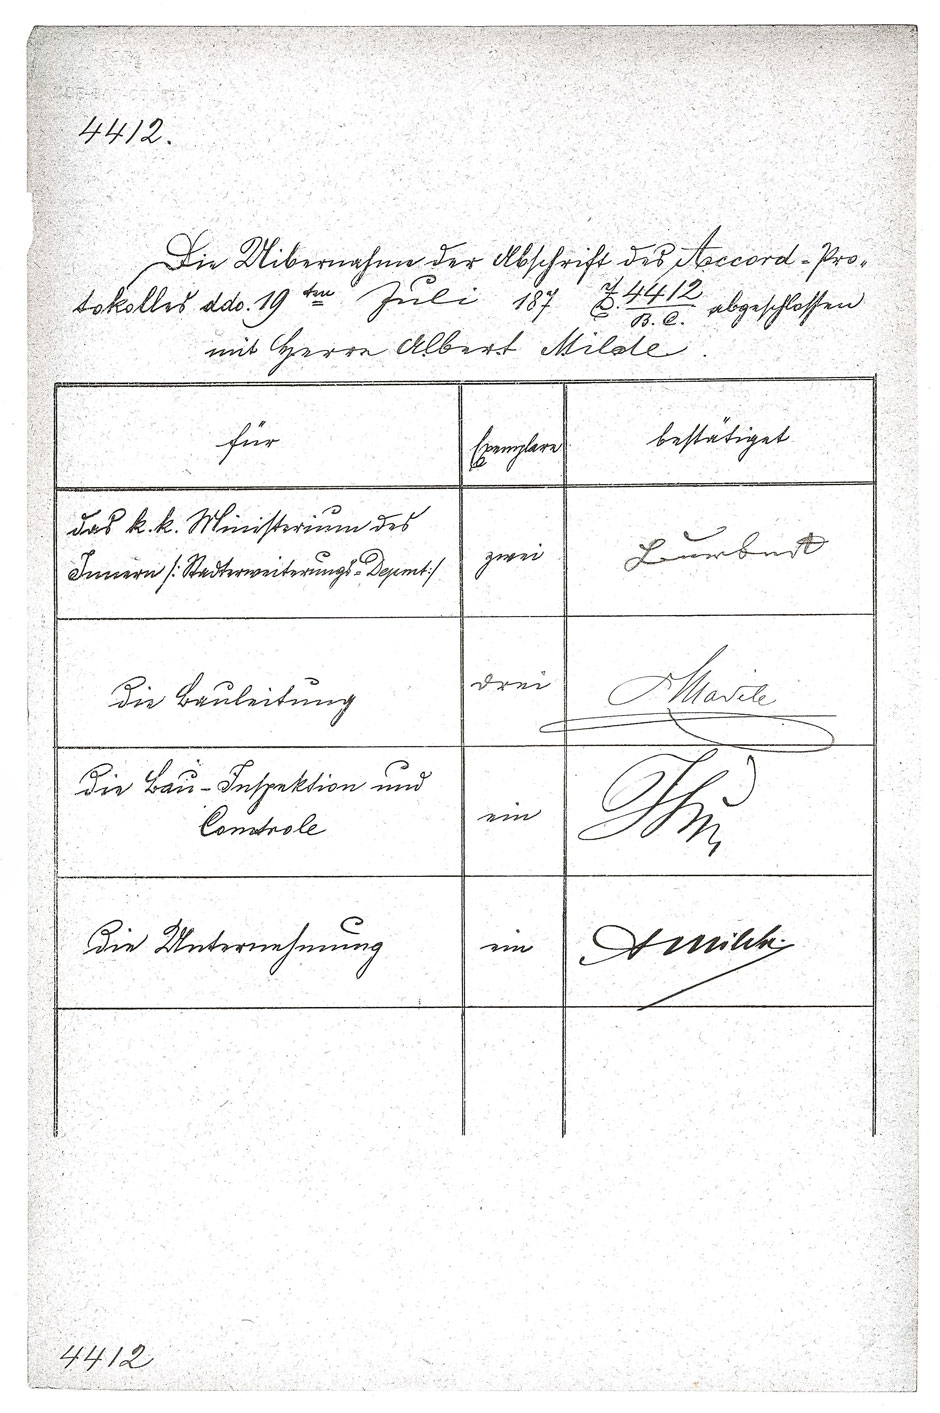 4412.
Die Uibernahme der Abschrift des Accord-Pro-
tokolles ddo. 19ten Juli 187 Z. 4412/B.C. abgeschlossen
mit Herrn Albert Milde.
für Exemplare bestätiget
das k.k. Ministerium des
Innern /: Stadterweiterungs-Depmt:/ zwei
die Bauleitung drei
die Bau-Inspektion und
Controle ein
die Unternehmung ein A Milde.
4412